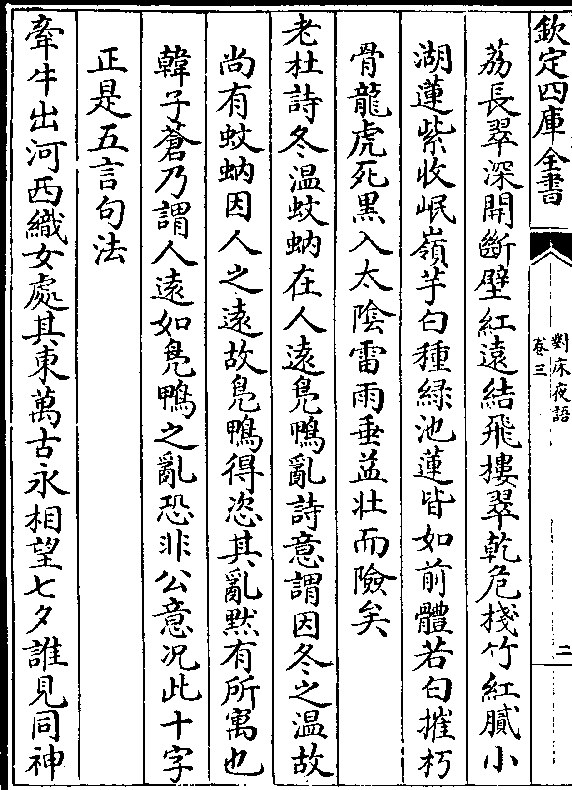 欽定四庫全書
對床夜語
卷三
二
荔長翠深開斷壁紅遠結飛樓翠乾危棧竹紅膩小
湖蓮紫收岷嶺芋白種綠池蓮皆如前體若白摧朽
骨龍虎死黒入太陰雷雨垂益壯而險矣
老杜詩冬温蚊蚋在人遠鳬鴨亂詩意謂因冬之温故
尚有蚊蚋因人之遠故鳬鴨得恣其亂黙有所寓也
韓子蒼乃謂人遠如鳬鴨之亂恐非公意况此十字
正是五言句法
牽牛出河西織女處其東萬古永相望七夕誰見同神